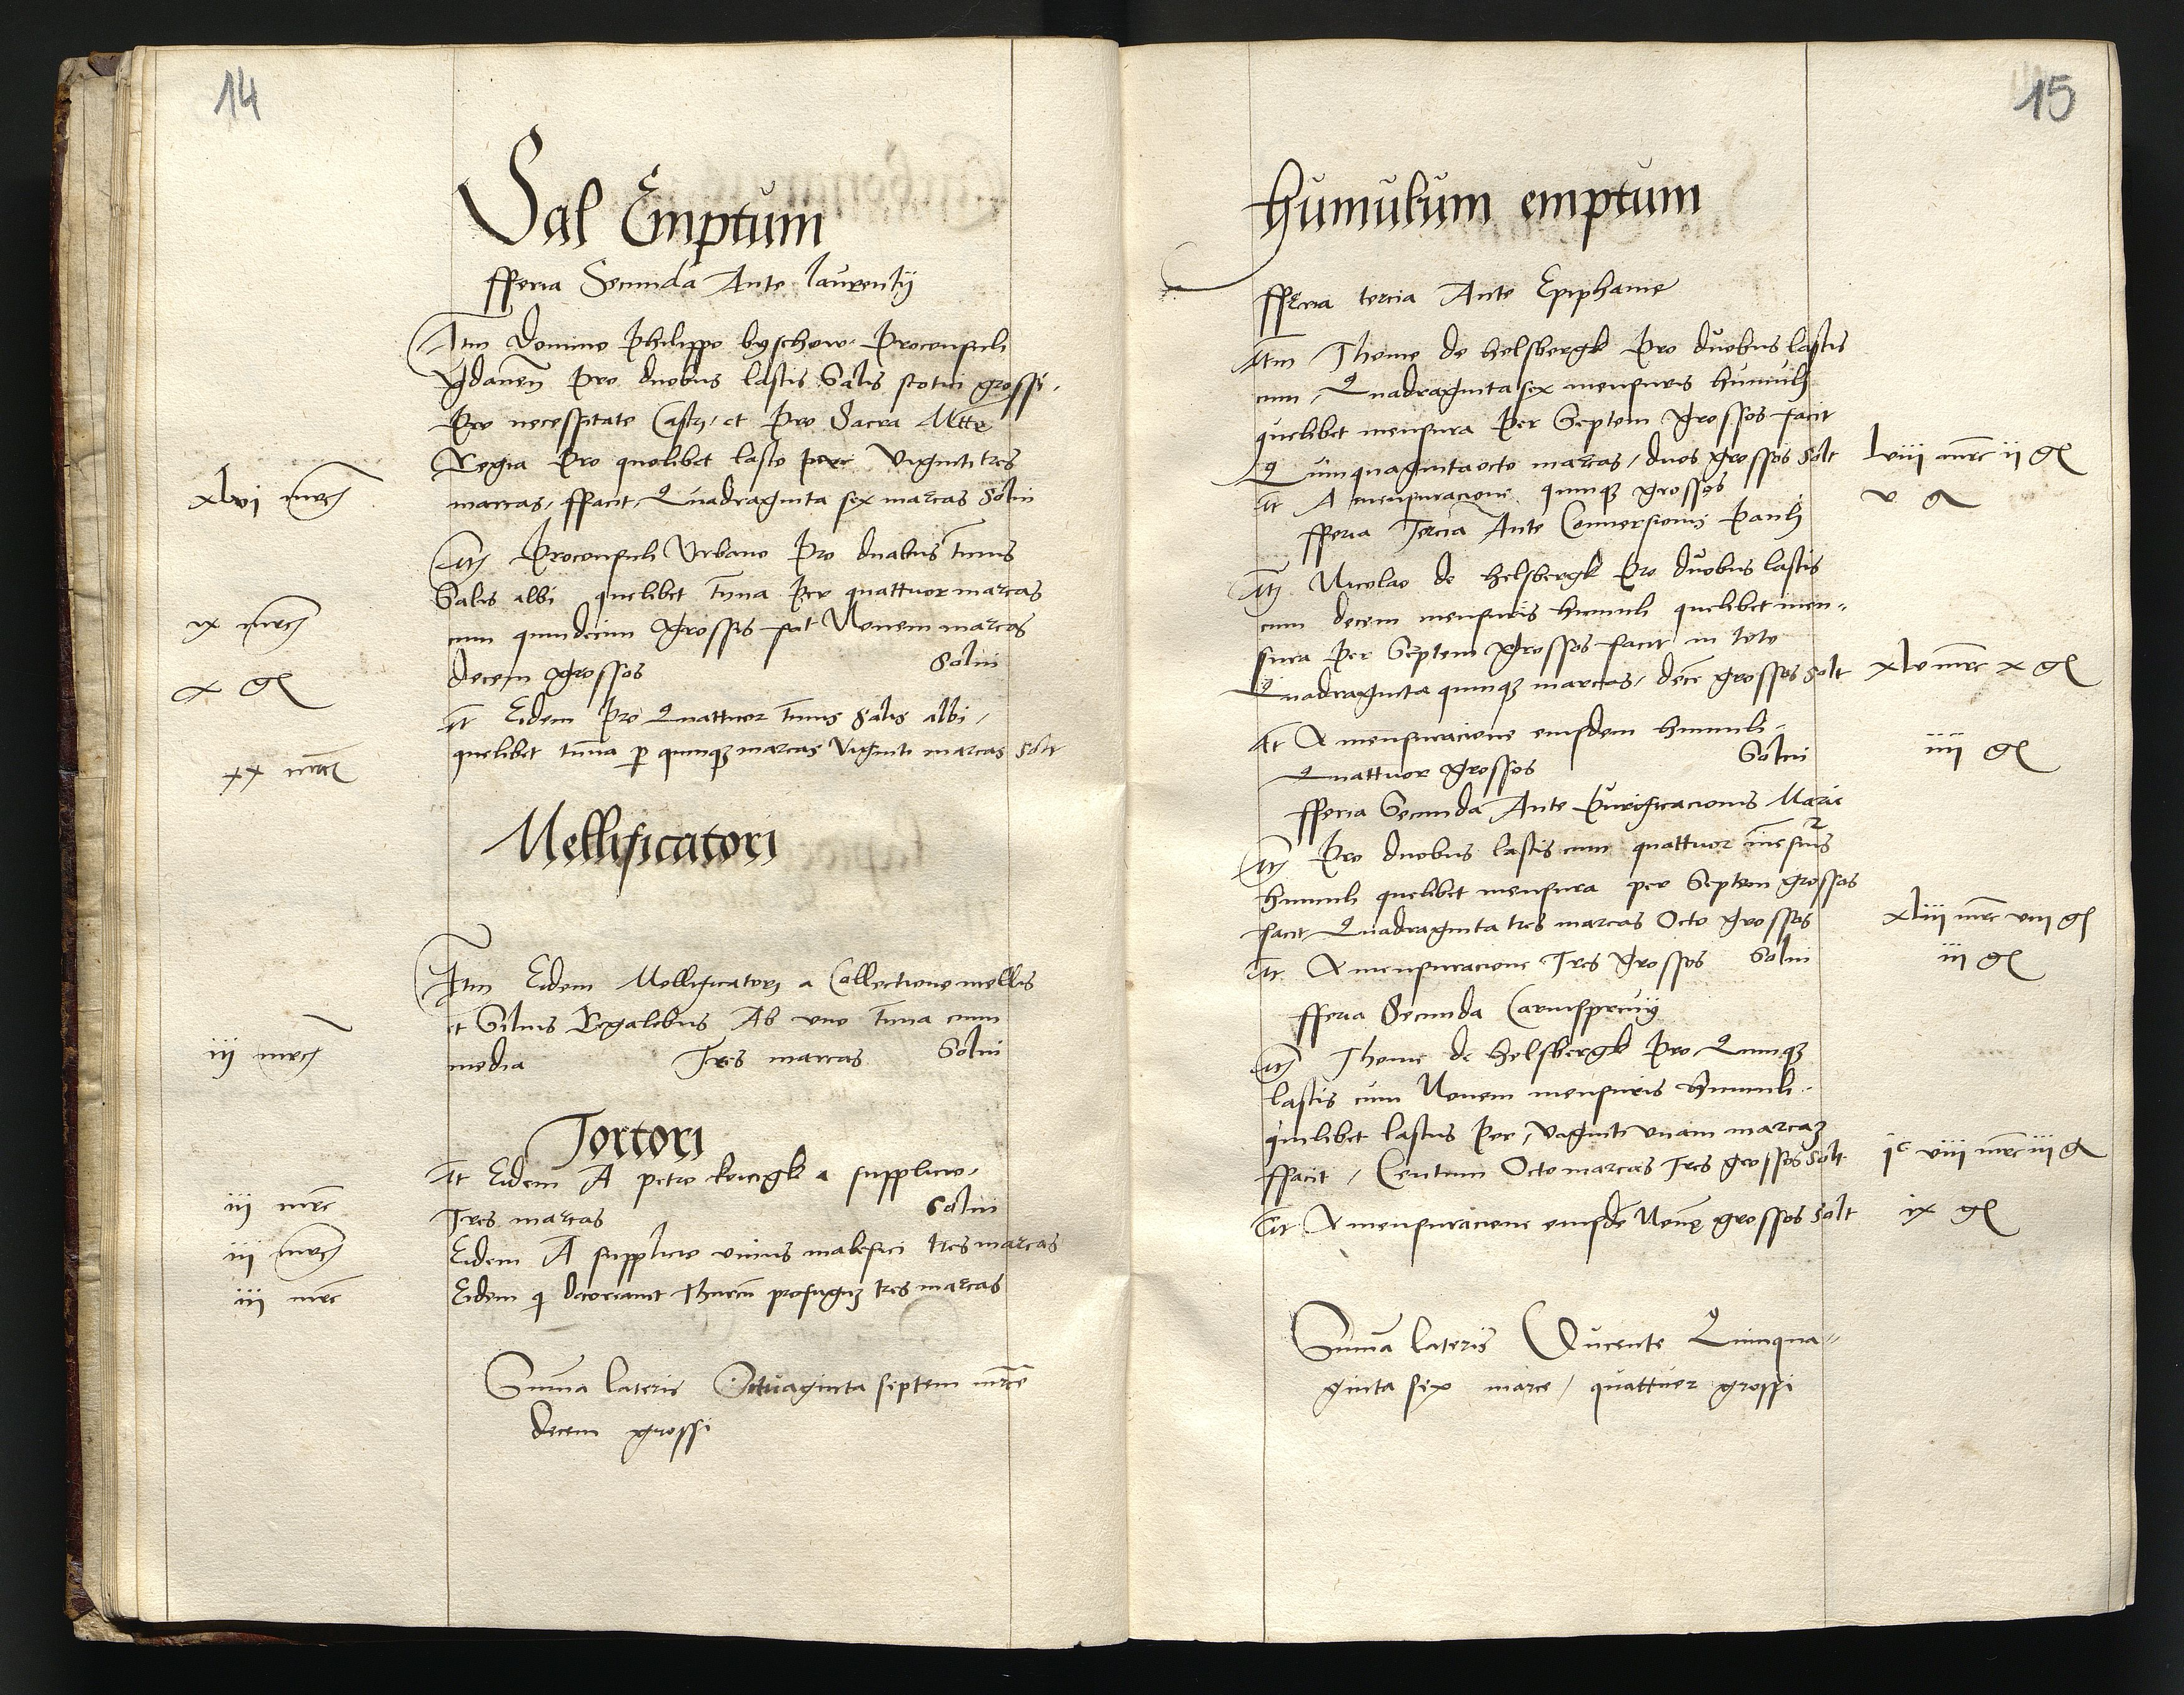 14
Sal Emptum
fferia Secunda Ante laurentij
Itm Domino Philippo byschow Proconsuli
gdanen Pro duobus lastis Salis grossi
Pro necessitate Castri et Pro Sacra Mtte
Regia Pro quolibet lasto per Viginti tres
xlvi mrc marcas ffacit Quadraginta sex marcas Solui
Itm Proconsuli Vrbano Pro duabus tunis
Salis albi quelibet tuna Per quattuor marcas
ix mrc cum quindecim grossis fat Nouem marcas
x gl decem grossos Solui
It Eidem Pro Quattuor tunis Salis albi
xx mrc quelibet tuna p quinqz marcas Viginti marcas Solt
Mellificatori
Itm Eidem Mellificatori a Collectione mellis
et Siluis Regalibus Ab vno tuna cum
iij mrc media Tres marcas Solui
Tortori
It Eidem A petro a supplicio
iij mrc Tres marcas Solui
iij mrc Eidem A supplicio vnius malefici tres marcas
iij mrc Eidem q thurcu profugz tres marcas
Suma lateris Octuaginta septem mrce
decem grossi
15
humulum emptum
fferia tercia Ante Epiphanie
Itm Thome de helsbergk Pro duobus lastis
cum Quadraginta sex mensuris humuli
quelibet mensura Per Septem grossos facit
Quinquaginta octo marcas duos grossos Solt lviii mrc ii gl
It A mensuracione quinqz grossos v gl
fferia Tercia Ante Conuersionis Pauli
Itm Nicolao de helsbergk Pro duobus lastis
cum decem mensuris humuli quelibet men-
sura Per Septem grossos facit in toto
Quadraginta quinqz marcas decē grossos Solt xlv mrc x gl
It A mensuracione eiusdem humuli
Quattuor grossos Solui iiii gl
fferia Secunda Ante Purificacionis Marie
Itm Pro duobus lastis cum quattuor mēsuris
humuli quelibet mensura per Septem grossos
facit Quadraginta tres marcas Octo grossos xliii mrc viii gl
It A mensuracione Tres grossos Solui iii gl
fferia Secunda Carnispreuij
Itm Thome de helsbergk Pro Quinqz
lastis cum Nouem mensuris humuli
quilibet lastus Per Viginti vnam marcaz
ffacit Centum Octo marcas Tres grossos Solt ic viii mrc iii gl
It A mensuracione eiusdē Nouē grossos Solt ix gl
Suma lateris Ducente Quinqua-
ginta sex marce quattuor grossi